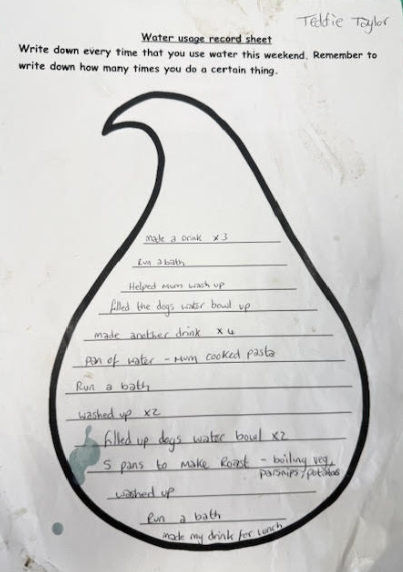 Teddie Taylor
Water usage record sheet
Write down every time that you use water this weekend. Remember to
write down how many times you do a certain thing.
Made a Drink x3
Run a bath
Helped Mum wash up
filled the dogs water bowl up
made another drink x4
Pan of water - Mum cooked pasta
Run a bath
washed up x2
filled up dogs water bowl x2
5 pans to make Roast - boiling veg,
parsnips/potatoes
washed up
Run a bath
made my drink for lunch